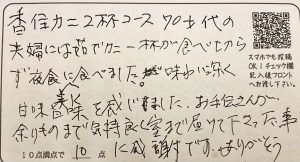 香住カニ2杯コース 70士代の
夫婦には茹でカニ一杯が食べ切から
ず夜食に食べました。味わい深く
甘味美味を感じました、お手伝さんが、
余りものまで気持良く室まで届けて下さった、事
10点満点で 10 点 に感謝です、ありがとう
スマホでも投稿
OK！チェック欄
記入後フロント
へお渡し下さい。